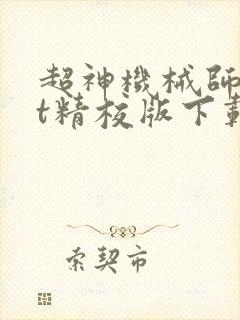 超神機械師
t精校版下載
索契市